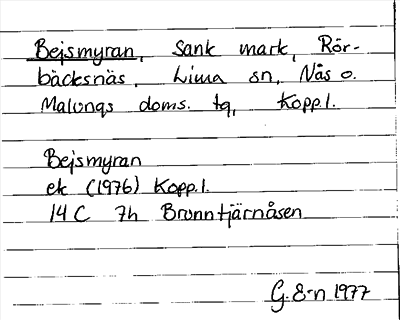 Bejsmyran, Sank mark, Rör-
bäcksnäs, Lima sn, Nås o.
Malungs doms. tg, Koppl.
Bejsmyran
ek (1976) Koppl.
14 C 7h Bronntjärnåsen
G. E-n 1977